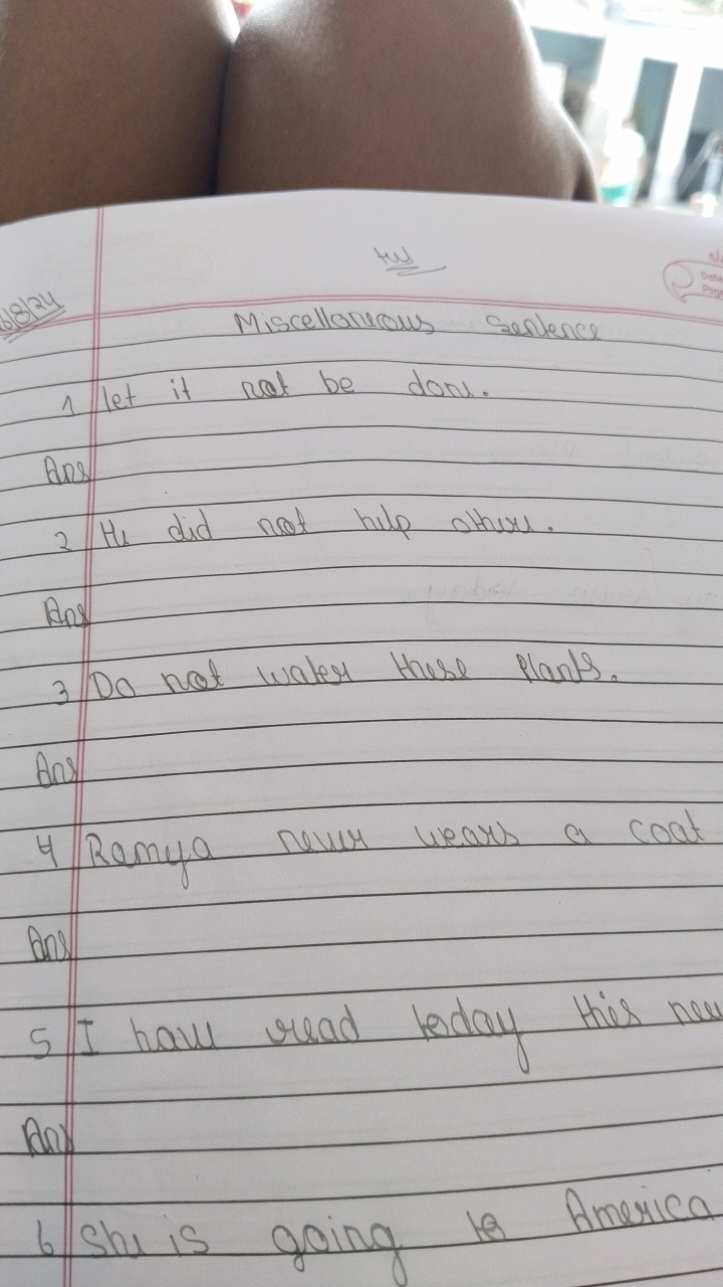 HW
6/8/24
Miscellaneous Sentence
1 let it not be done.
Ans
2 He did not help others.
Ans
3 Do not water these Plants.
Ans
4 Ramya never wears a coat
Ans
5 I have read today this new
Ans
6 She is going to America